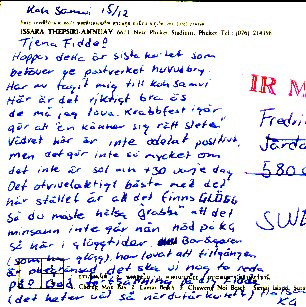 Koh Samui 15/12
ISSARA THEPSIRI-ANNUAY 66/1 New Phuket Stadium, Phuket Tel: (076) 214198
Tjena Fidde!
Hoppas detta är sista kortet som
behöver ge postverket huvudbry.
Har nu tagit mig till Koh Samui
Här är det riktigt bra ös
de må jag lova. Krabbfest igår
gör att en känner sig rätt sleten
Vädret här är inte odelat positivt,
men det gör inte så mycket om
det inte är sol min +30 varje dag
Det otvivelaktigt bästa med det
här stället är att det finns GLÖGG
Så du måste hälsa att det
minsann inte går nån nöd på kg
så här i glöggtider. Bar-ägaren
(som har glögg) har lovat att tillgången
är obegränsad, det ska vi nog ta reda
på!
(det heter väl så nordvärk
IR M
Fredri
Järda
580
SWE